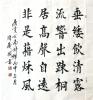 垂緌飲清露
流響出踈桐
居高聲自遠
非是藉秋風